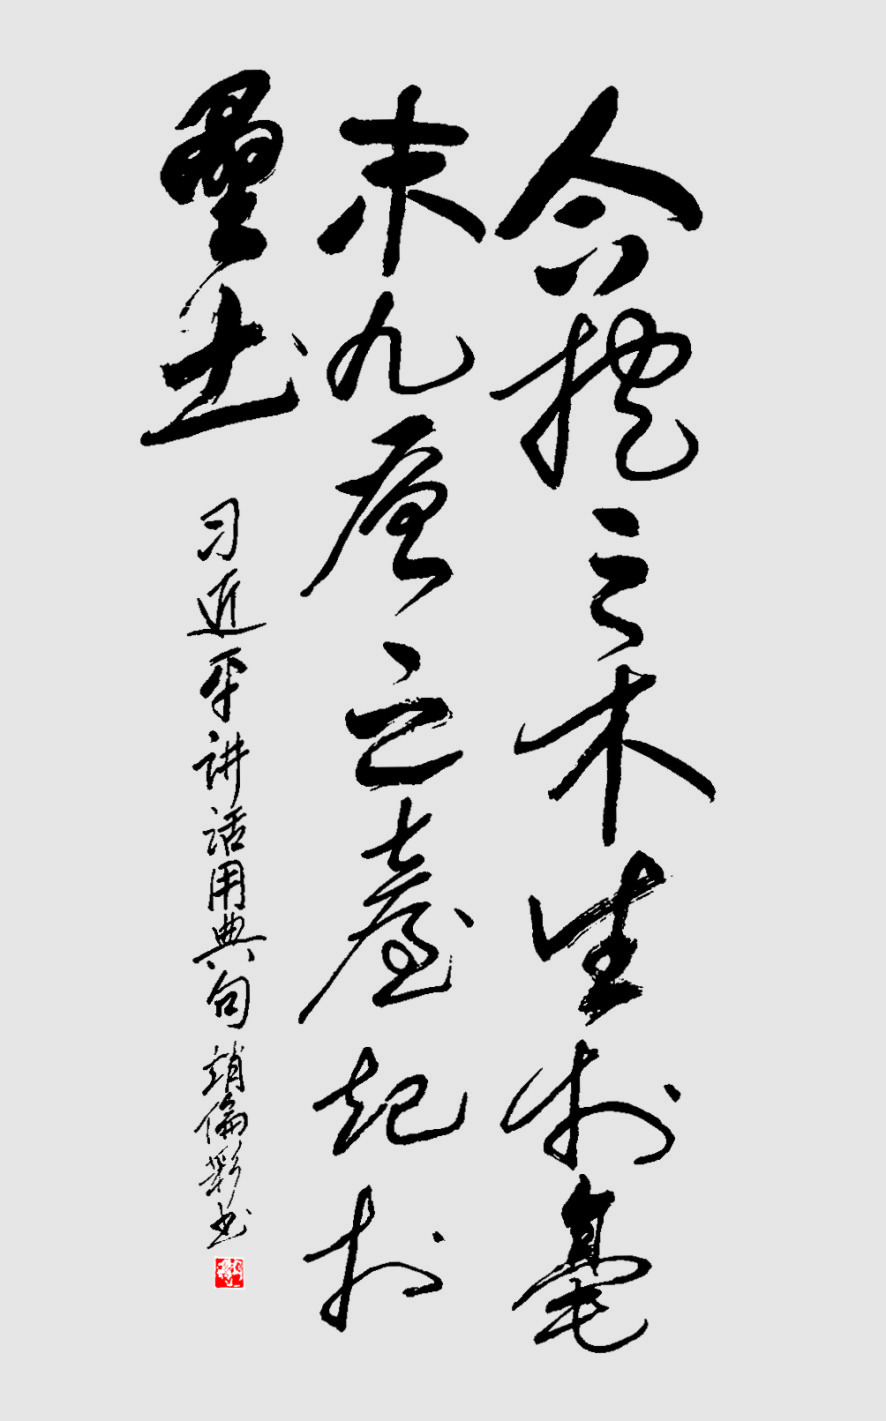 合抱之木生於毫
末九層之臺起於
壘土
习近平讲话用典句 趙倫彩书